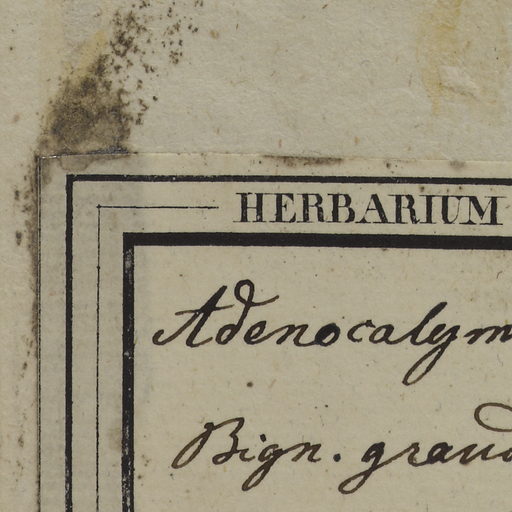 HERBARIUM
Adenocalym
Bign. grand